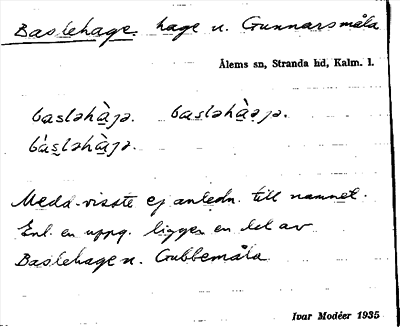 Baslehage. hage u. Gunnarsmåla
Ålems sn, Stranda hd, Kalm. l.
basləhàɡə. basləhàəɡə.
bàsləhàɡə.
Medd. visste ej anledn. till namnet.
Enl. en uppg. ligger en del av
Baslehage u. Gubbemåla
Ivar Modéer 1935